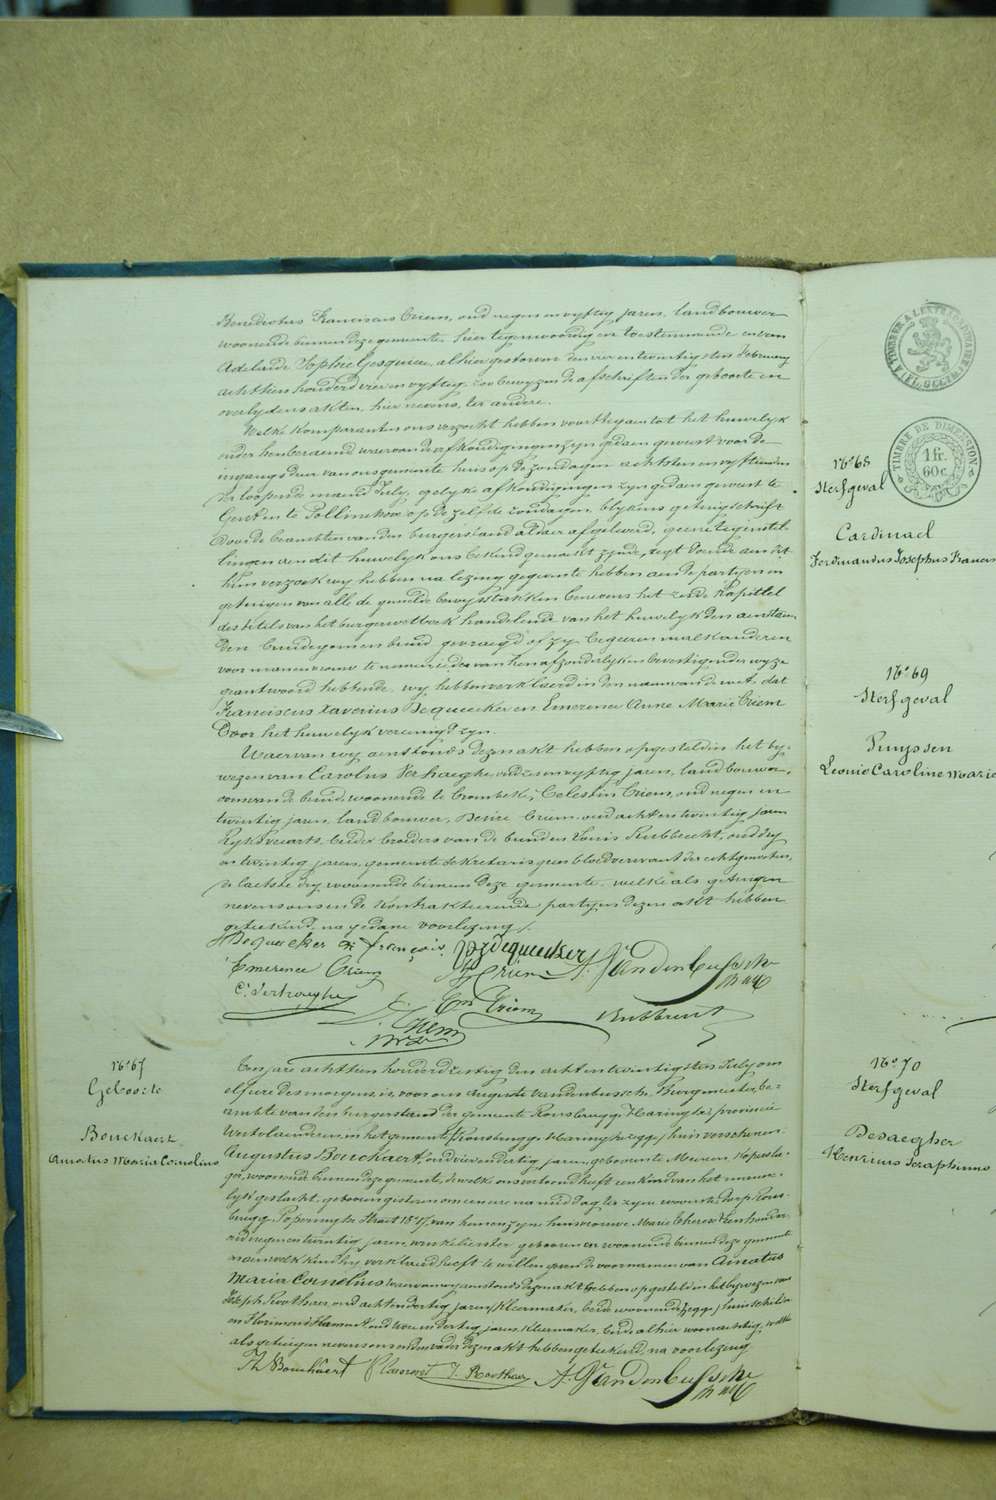 Benedictus Franciscus Criem, oud negen en vyftig jaren, landbouwer
woonende binnen deze gemeente, hier tegenwoordig en toestemmende en van
Adelaide Sophie Gesquiere, alhier gestorven den vier en twintigsten February
achttien honderd vier en vyftig, zoo bewyzen de afschriften der geboorte en
overlydens akten, hier nevens, ter andere.
Welke komparanten ons verzocht hebben voort te gaen tot het huwelyk
onder hen beraemd waervan de afkondigingen zyn gedaen geweest voor de
ingangs deur van ons gemeente huis op de zondagen achtsten en vyftienden
der loopende maend July, gelyke afkondigingen zyn gedaen geweest te
te Pollinkhove op de zelfde zondagen, blykens getuigschrift
door de beambten van den burgerstand aldaer afgeleverd, geene tegenstel-
lingen aen dit huwelyk ons bekend gemaekt zynde, regt doende aen dit
hun verzoek wy hebben na lezing gegeven te hebben aen de partyen en
getuigen van alle de gemelde bewysstukken benevens het zesde kapittel
des titels van het burger wetboek handelende van het huwelyk den aenstaen-
den bruidegom en bruid gevraegd of zy begeeren malkanderen
voor man en vrouw te nemen ieder van hen afzonderlyk en bevestigender wyze
geantwoord hebbende, wy hebben verklaerd in den naem van de wet, dat
Franciscus Xaverius Dequeecker en Emerence Anne Marie Criem
Door het huwelyk vereenigd zyn.
Waervan wy aenstonds dezen akt hebben opgesteld in het by-
wezen van Carolus Verhaeghe, oud en vyftig jaren, landbouwer,
oom van de bruid, woonende te Crombeke, Celestin Criem, oud negen en
twintig jaren, landbouwer, Desiré Criem, oud acht en twintig jaren
beider broeders van de bruid en Louis Rubbrecht, oud dry
en twintig jaren, gemeente sekretaris geen bloedverwant der echtgenooten,
de laetste dry woonende binnen deze gemeente, welke als getuigen
nevens ons en de kontrakteerende partyen dezen akt hebben
geteekend, na gedane voorlezing.
Dequeeker françois. Dequeecker
Emerence Criem B Criem A. VandenBussche
C. Verhaeghe Criem Rubbrecht
Criem
No 67
Geboorte
Bouckaert
Amatus Maria Cornelius
Ten jare achttien honderd zestig den acht en twintigsten July om
elf ure des morgens, is voor ons Auguste Vandenbussche Burgmeester, be-
ambte van den burgerstand der gemeente Rousbrugge Haringhe, provincie
Westvlaenderen, in het gemeente huis verschenen
Augustus Bouckaert, oud vier en dertig jaren, geboren te Meenen, koperslae-
ger, woonende binnen deze gemeente, dewelke ons vertoond heeft een kind van het manne-
lyk geslacht, geboren gisteren om een ure na middag ter zyner woonste dorp Rous-
brugge Poperinghe Straet van hem en zyne huisvrouwe Marie Therese
oud negen en twintig jaren, winkelierster, geboren en woonende binnen deze gemeente
en aen welk kind hy verklaerd heeft te willen geven de voornamen van Amatus
Maria Cornelius waervan wy aenstonds dezen akt hebben opgesteld in het bywezen van
Joseph Roothaer, oud acht en dertig jaren, Kleermaker,
en oud en dertig jaren, kleermaker, beide alhier woonachtig, welke
als getuigen nevens ons en den vader dezen akt hebben geteekend, na voorlezing
Bouckaert J. Roothaer A. VandenBussche
TIMBRE A L'EXTRAORDINAIRE
TIMBRE DE DIMENSION
1 fr.
60 c.
No 68
Sterfgeval
Cardinael
Ferdinandus Josephus Francis
No 69
Sterfgeval
Pruyssen
Leonie Caroline Marie
No 70
Sterfgeval
Desaegher
Henricus Seraphinus